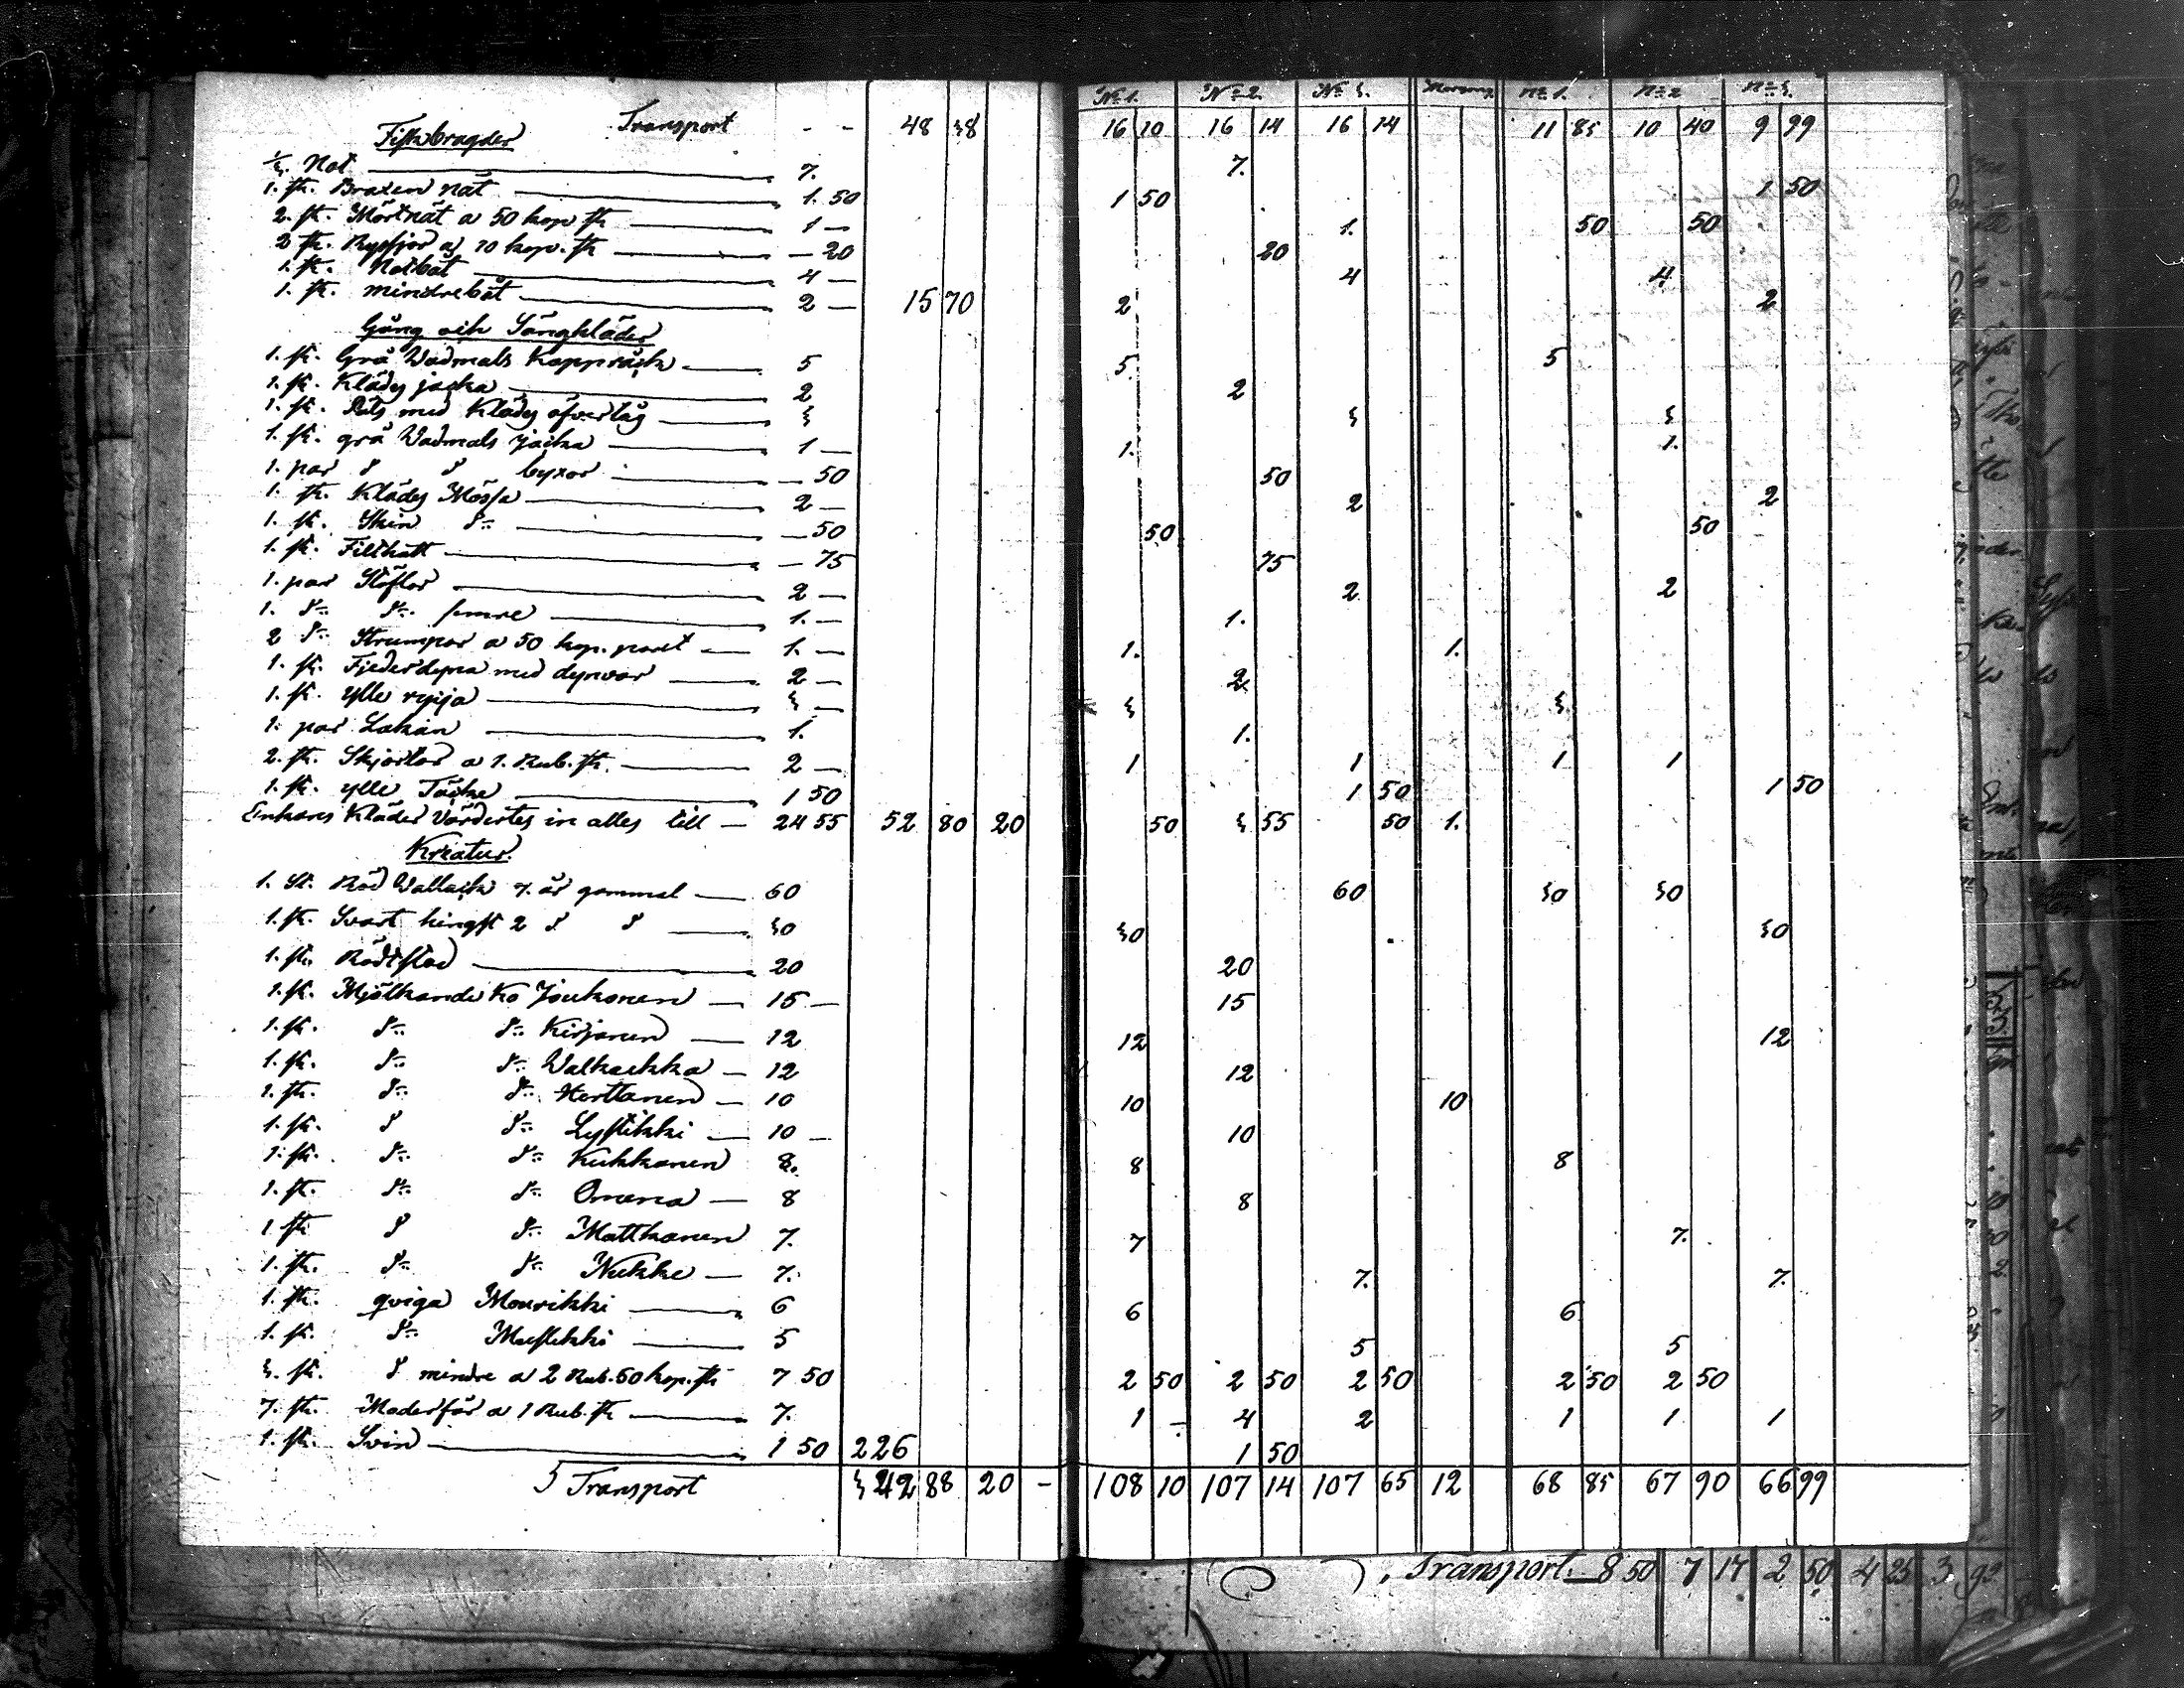 No 1. No 2. No 3. No 1. No 2 No 3.
Transport - - 48 38 16 10 16 14 16 14 11 85 10 40 9 99
Fiskbragder
1/3 Not 7. 7.
1. st. Braxen nät 1. 50 1 50 1 50
2. st. Mörtnät a 50 kop st 1 — 1. 50 50
2 st. Rysjor a 10 kop. st — 20 20
1. st. Notbåt 4 — 4 4
1. st. mindre båt 2 — 15 70 2 2
Gång och Sängkläder
1. st. Grå Wadmals Kappråck 5 5 5
1. st. Klädes jacka 2 2
1. st. Päls med Klädes öfvertåg 3 3 3
1. st. grå Wadmals jacka 1 — 1. 1.
1. par d d byxor — 50 50
1. st. Klädes Mössa 2 — 2 2
1. st. Skin d:o — 50 50 50
1. st. Filthatt — 75 75
1. par Stöflor 2 — 2 2
1. d:o d:o semre 1. — 1.
2 d:o Strumpor a 50 kop. paret 1. — 1. 1.
1. st. Fjederdyna med dynvar 2 — 2
1. st. ylle ryija 3 — 3 3
1. par Lakan 1. 1.
2. st. Skjortor a 1. Rub. st. 2 — 1 1 1 1
1. st. ylle Täcke 1 50 1 50 1 50
Enkans Kläder Värdertes in alles till — 24 55 52 80 20 50 3 55 50 1.
Kreatur.
1. st. Röd Wallack 7. år gammal — 60 60 30 30
1. st. Svart hingst 2 d d — 30 30 30
1. st. Rödt stod 20 20
1. st. Mjölkande Ko Joukonen — 15 — 15
1. st. d:o d:o Kirjonen — 12 12 12
1. st. d:o d:o Walkaekka — 12 12
1. st. d:o d:o Herttanen — 10 10 10
1. st. d d:o Lystikki — 10 — 10
1. st. d:o d:o Kukkonen 8. 8 8
1. st. d:o d:o Omena — 8 8
1. st d d:o Mattkonen 7. 7 7.
1. st. d:o d:o Nukke — 7. 7. 7.
1. st. qviga Mourikki 6 6 6
1. st. d:o Mustikki 5 5 5
3. st. d mindre a 2 Rub. 50 kop. st 7 50 2 50 2 50 2 50 2 50 2 50
7. st. Moderfår a 1 Rub. st 7. 1 - 4 2 1 1 1
1. st. Svin 1 50 226 1 50
Transport 342 88 20 - 108 10 107 14 107 65 12 68 85 67 90 66 99
Transport. 8 50 7 17 2 50 4 25 3